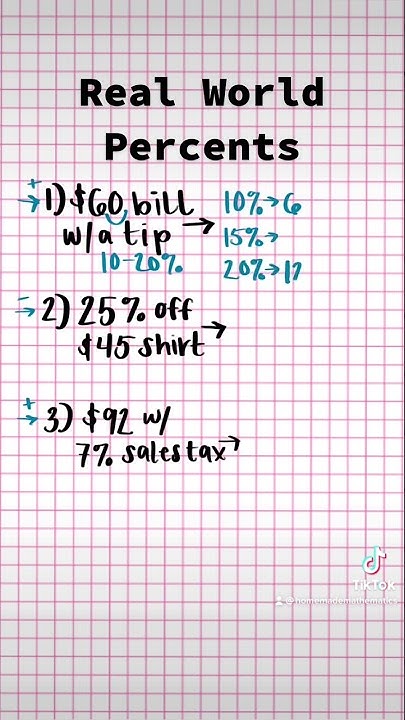 Real World
Percents
+
→ 1) $60 bill → 10% → 6
w/ a tip 15% →
10-20% 20% → 12
-
→ 2) 25% off →
$45 shirt
+
→ 3) $92 w/
7% sales tax →
TikTok
@homemademathematics